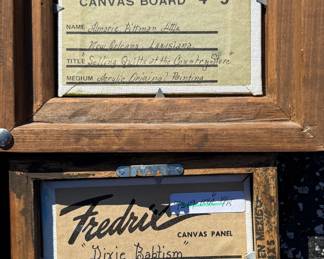 CANVAS BOARD
NAME Almarie Pittman Little
New Orleans, Louisiana
TITLE Selling Quilts at the Country Store
MEDIUM Acrylic Original Painting
Fredrix
CANVAS PANEL
"Dixie Baptism"
EN MEXICO